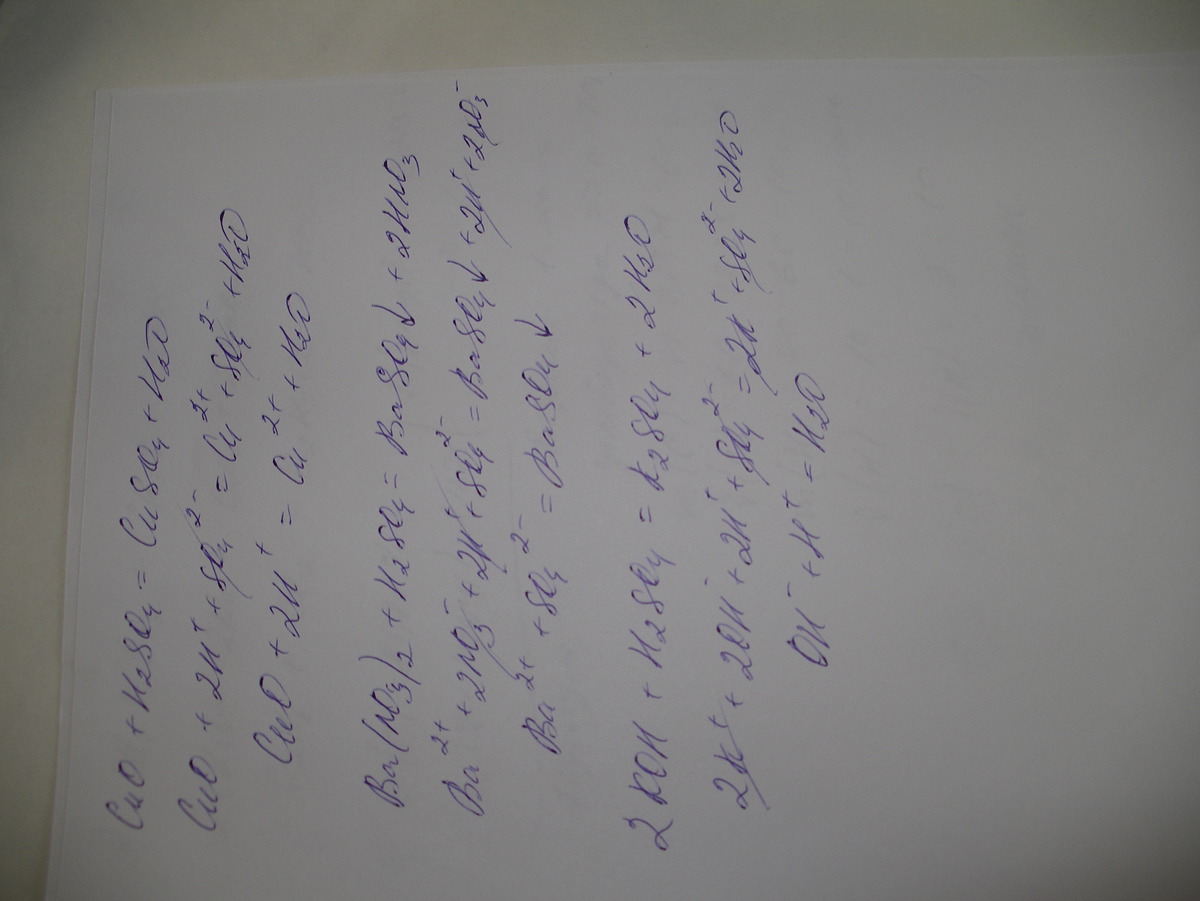 CuO + H₂SO₄ = CuSO₄ + H₂O
CuO + 2H⁺ + SO₄²⁻ = Cu²⁺ + SO₄²⁻ + H₂O
CuO + 2H⁺ = Cu²⁺ + H₂O
Ba(NO₃)₂ + H₂SO₄ = BaSO₄↓ + 2HNO₃
Ba²⁺ + 2NO₃⁻ + 2H⁺ + SO₄²⁻ = BaSO₄↓ + 2H⁺ + 2NO₃⁻
Ba²⁺ + SO₄²⁻ = BaSO₄↓
2KOH + H₂SO₄ = K₂SO₄ + 2H₂O
2K⁺ + 2OH⁻ + 2H⁺ + SO₄²⁻ = 2K⁺ + SO₄²⁻ + 2H₂O
OH⁻ + H⁺ = H₂O